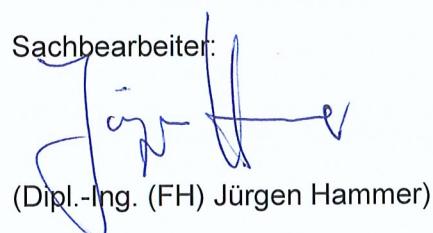 Sachbearbeiter:
Jürgen Hammer
(Dipl.-Ing. (FH) Jürgen Hammer)